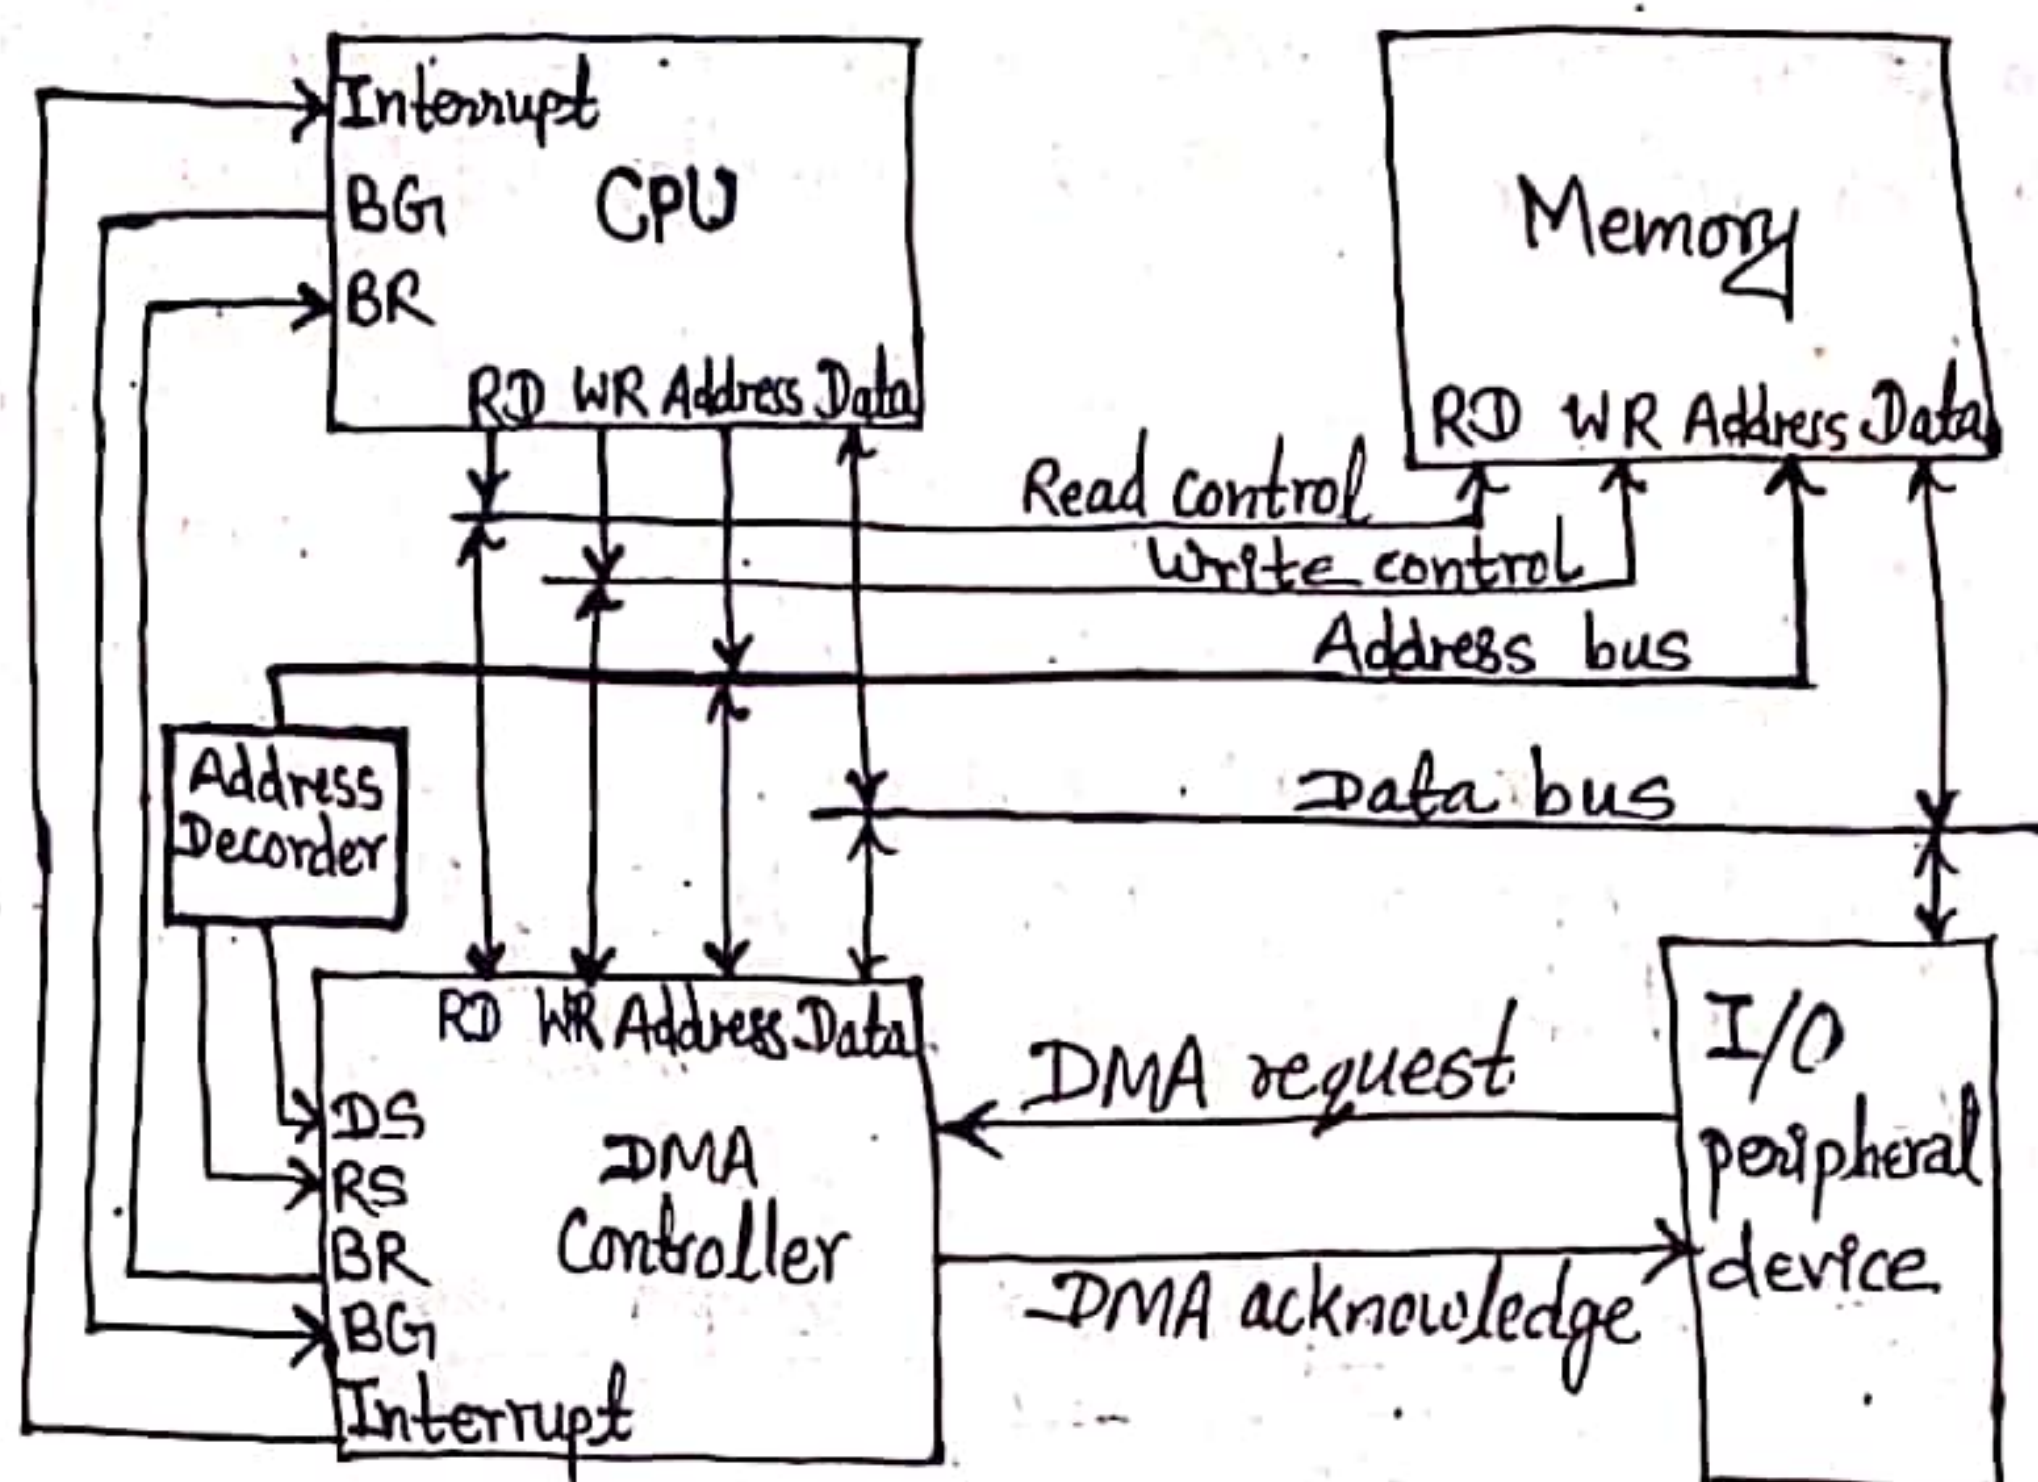 Interrupt
BG
CPU
BR
RD WR Address Data
Memory
RD WR Address Data
Read control
Write control
Address bus
Data bus
Address
Decorder
RD WR Address Data
DS
RS
BR
BG
Interrupt
DMA
Controller
DMA request
DMA acknowledge
I/O
peripheral
device